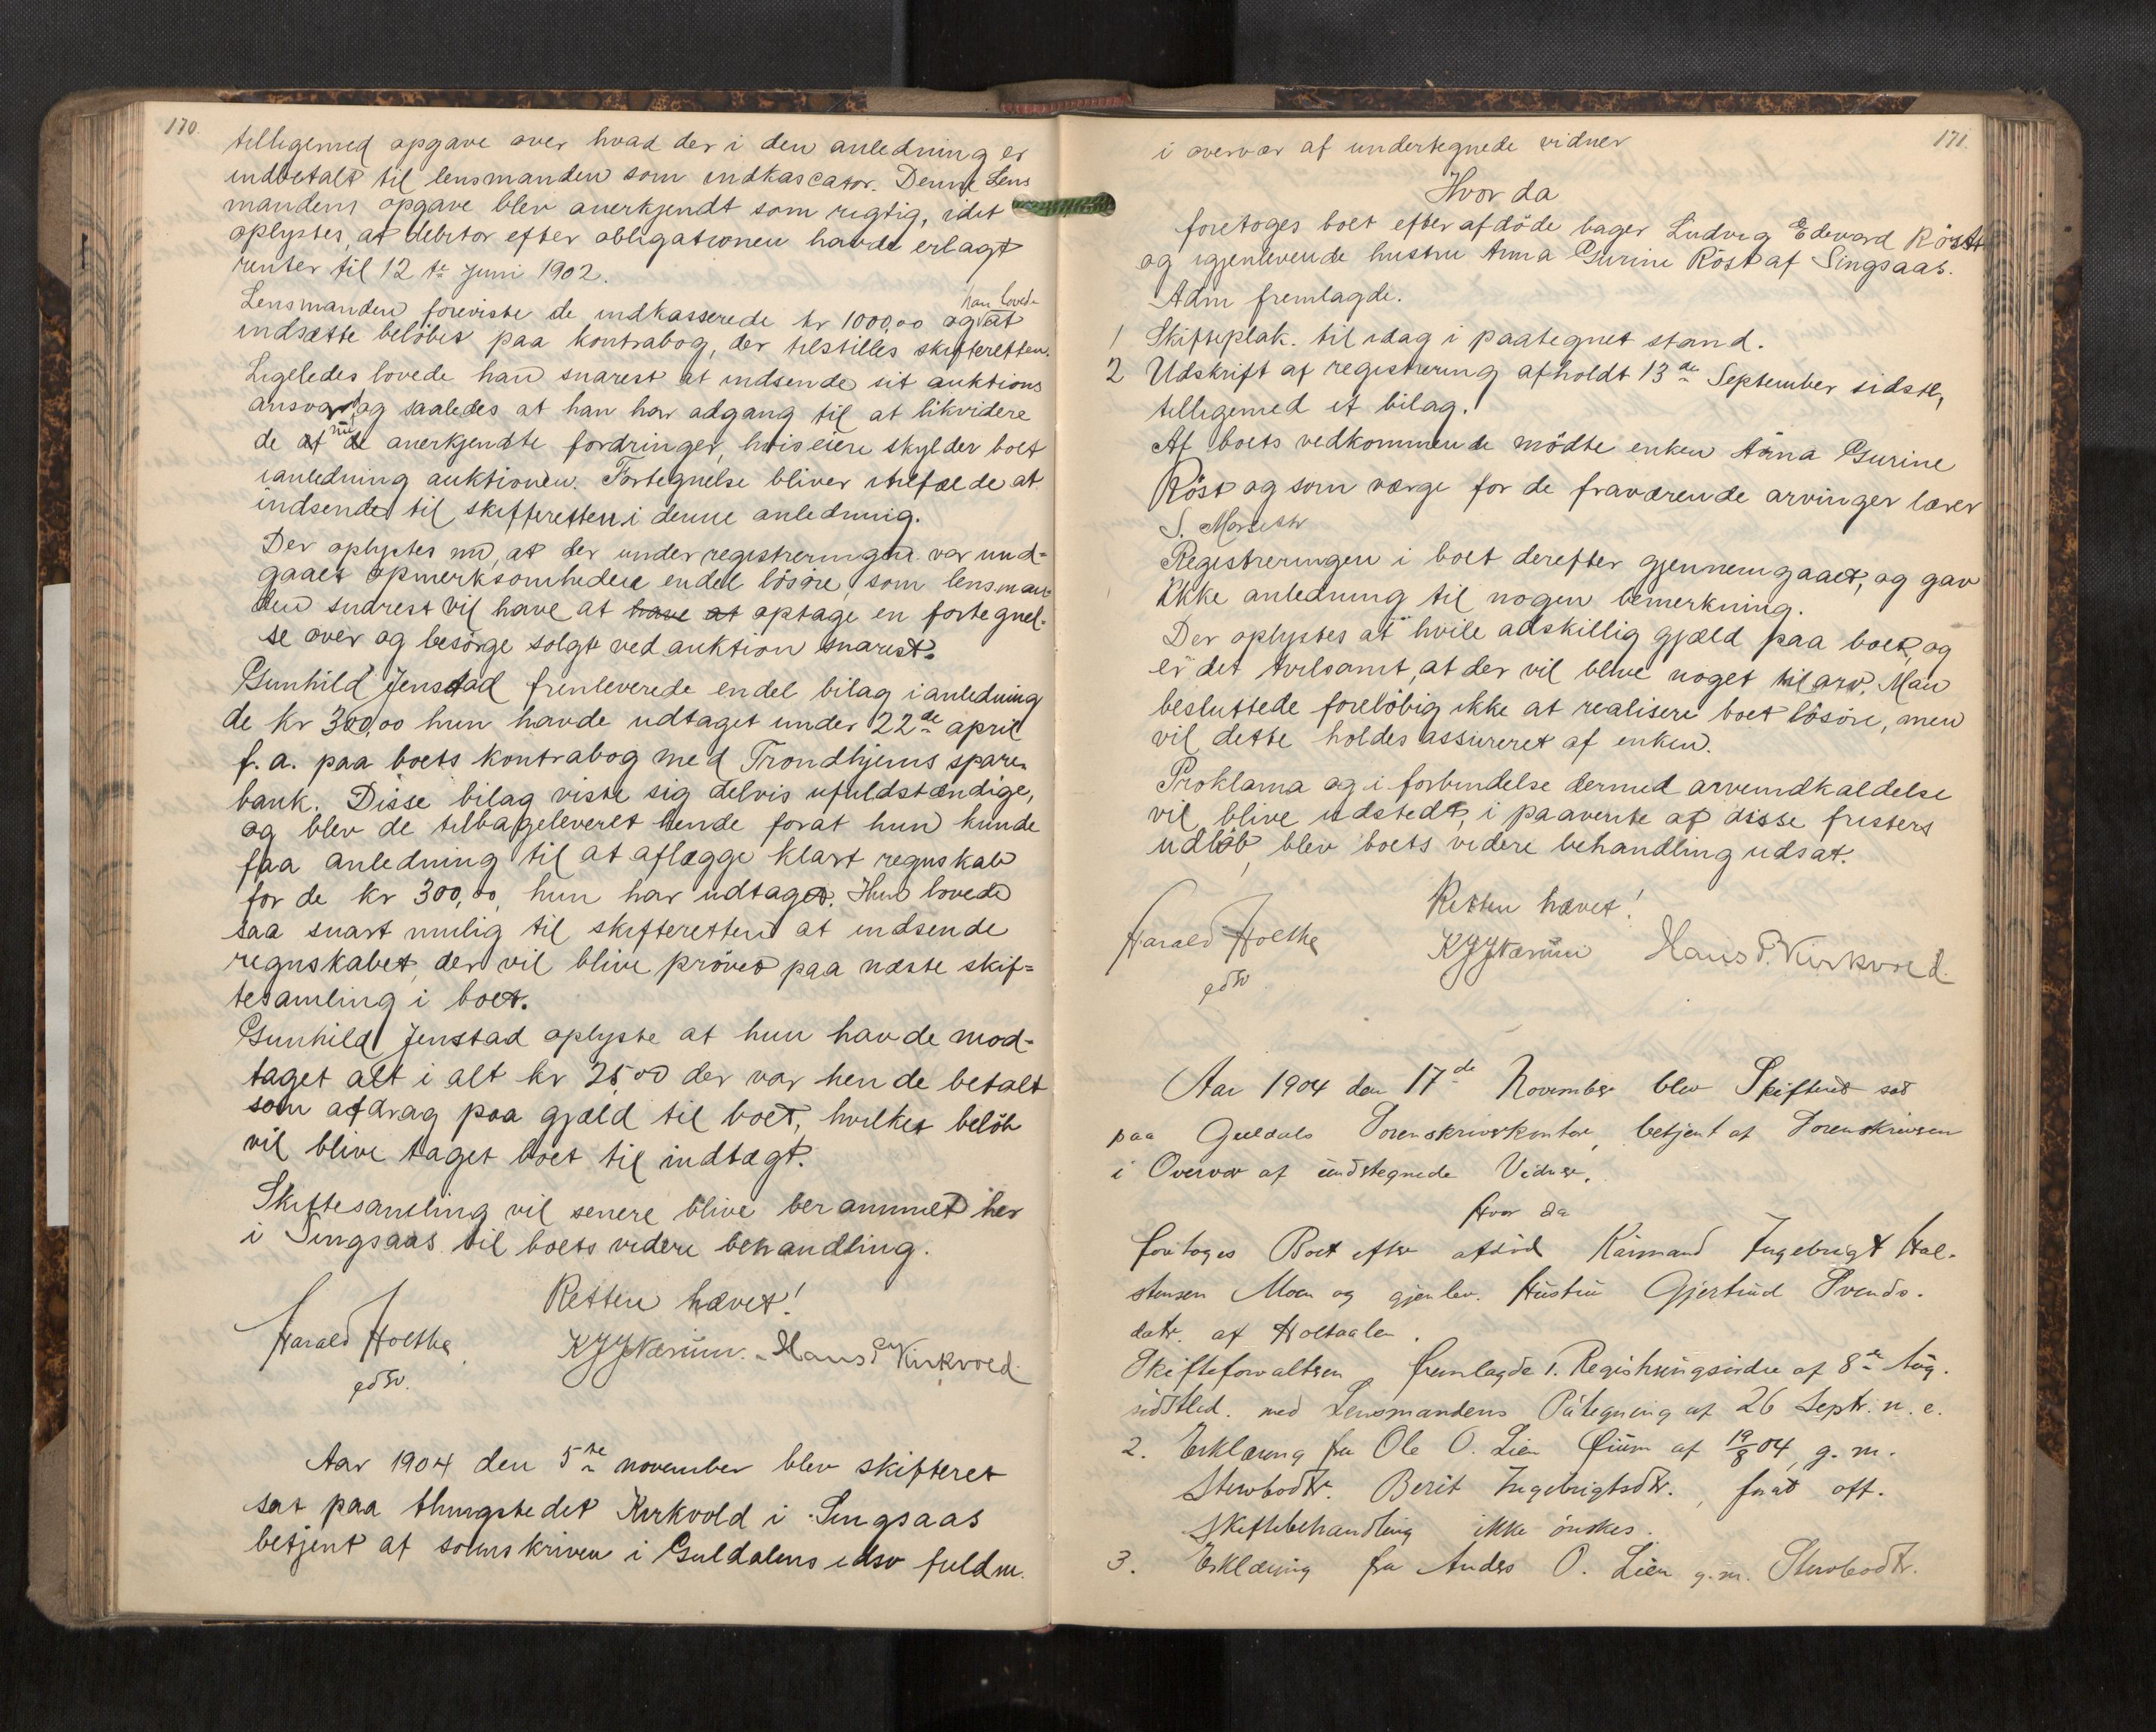 170.
tilligemed opgave over hvad der i den anledning er
indbetalt til lensmanden som indkascator. Denne Lens
mandens opgave blev anerkjendt som rigtig, idet
oplystes, at debitor efter obligationen havde erlagt
renter til 12 te Juni 1902.
Lensmanden foreviste de indkasserede kr 1000,00 og han lovede at
indsætte beløbet paa kontrabog, der tilstilles skifteretten.
Ligeledes lovede han snarest at indsende sit auktions
ansvar og saaledes at han har adgang til at likvidere
de af de nu anerkjendte fordringer, hvis eiere skylder boet
ianledning auktionen. Fortegnelse bliver itilfælde at
indsende til skifteretten i denne anledning.
Der oplystes nu, at der under registreringen var und-
gaaet opmerksomheden endel løsøre, som lensman
den snarest vil have at have at optage en fortegnel-
se over og besørge solgt ved auktion snarest.
Gunhild Jenstad fremleverede endel bilag ianledning
de kr 300,00 hun havde udtaget under 22de april
f. a. paa boets kontrabog med Trondhjems spare-
bank. Disse bilag viste sig delvis ufuldstændige,
og blev de tilbageleveret hende forat hun kunde
faa anledning til at aflægge klart regnskab
for de kr 300,00 hun har udtaget. Hun lovede
saa snart mulig til skifteretten at indsende
regnskabet, der vil blive prøvet paa næste skif-
tesamling i boet.
Gunhild Jenstad oplyste at hun havde mod-
taget alt i alt kr 25,00 der var hende betalt
som afdrag paa gjæld til boet, hvilket beløb
vil blive taget boet til indtægt.
Skiftesamling vil senere blive berammet her
i Singsaas til boets videre behandling.
Retten hævet!
Harald Holthe
edsv.
K J J Nærum. Hans P. Kirkvold.
Aar 1904 den 5te november blev skifteret
sat paa thingstedet Kirkvold i Singsaas
betjent af sorenskriveren i Guldalens edsv fuldm.
171.
i overvær af undertegnede vidner
Hvor da
foretoges boet efter afdøde bager Ludvig Edevard Røst
og igjenlevende hustru Anna Gurine Røst af Singsaas.
Adm fremlagde.
1 Skifteplak. til idag i paategnet stand.
2 Udskrift af registrering afholdt 13de September sidstl,
tilligemed et bilag.
Af boets vedkommende mødte enken Anna Gurine
Røst og som værge for de fraværende arvinger lærer
S.
Registreringen i boet derefter gjennemgaaet, og gav
ikke anledning til nogen bemerkning.
Der oplystes at hvile adskillig gjæld paa boet, og
er det tvilsamt, at der vil blive noget til arv. Man
besluttede foreløbig ikke at realisere boet løsøre, men
vil dette holdes assureret af enken.
Proklama og i forbindelse dermed arveindkaldelse
vil blive udstedt, i paavente af disse fristers
udløb, blev boets videre behandling udsat.
Retten hævet!
Harald Holthe
edsv
K J J Nærum Hans P. Kirkvold.
Aar 1904 den 17de November blev Skifteret sat
paa Guldals Sorenskriverkontor, betjent af Sorenskriveren
i Overvær af undertegnede Vidner.
Hvor da
foretoges Boet efter afdød Kaarmand Ingebrigt Hal-
stensen Moen og gjenlev. Hustru Gjertrud Svends-
datr. af Holtaalen.
Skifteforvalteren fremlagde 1. Registreringsordre af 8de Aug.
sidstled. med Lensmandens Påtegning af 26 Septr. n. e.
2. Erklæring fra Ole O. Lien Øium af 19/8 04, g. m.
Stervbodtr. Berit Ingebrigtsdtr., forat off.
Skiftebehandling ikke ønskes.
3. Erklæring fra Anders O. Lien g. m. Stervbodtr.